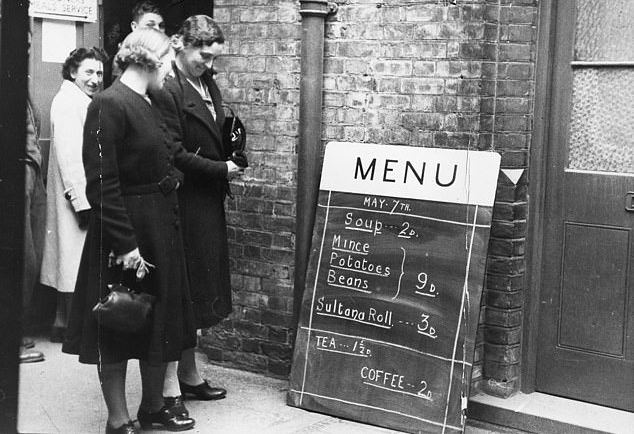 MEALS SERVICE
MENU
MAY. 7TH.
Soup -- 2D.
Mince
Potatoes
Beans
9D.
Sultana Roll --- 3D.
TEA -- 1½D.
COFFEE -- 2D.